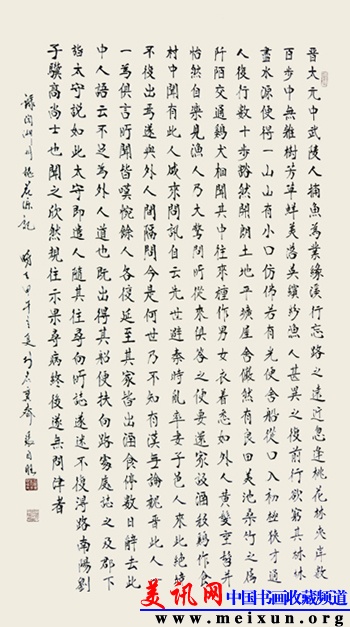 晋太元中武陵人捕魚為業緣溪行忘路之遠近忽逢桃花林夾岸数
百步中無雜樹芳草鮮美落英繽紛漁人甚異之復前行欲窮其林林
盡水源便得一山山有小口仿佛若有光便舍船從口入初極狹才通
人復行數十步豁然開朗土地平曠屋舍儼然有良田美池桑竹之属
阡陌交通鷄犬相聞其中往來種作男女衣着悉如外人黄髮垂髫并
怡然自樂見漁人乃大驚問所從來具答之便要還家設酒殺鷄作食
村中聞有此人咸來問訊自云先世避秦時亂率妻子邑人來此絶境
不復出焉遂與外人間隔問今是何世乃不知有漢無論魏晋此人
一為具言所聞皆嘆惋餘人各復延至其家皆出酒食停數日辞去此
中人語云不足為外人道也既出得其船便扶向路處處誌之及郡下
詣太守説如此太守即遣人隨其往尋向所誌遂迷不復得路南陽劉
子驥高尚士也聞之欣然規往未果尋病終後遂無問津者
録陶淵明桃花源記 甲午之夏
美讯网 中国书画收藏频道
www.meixun.org